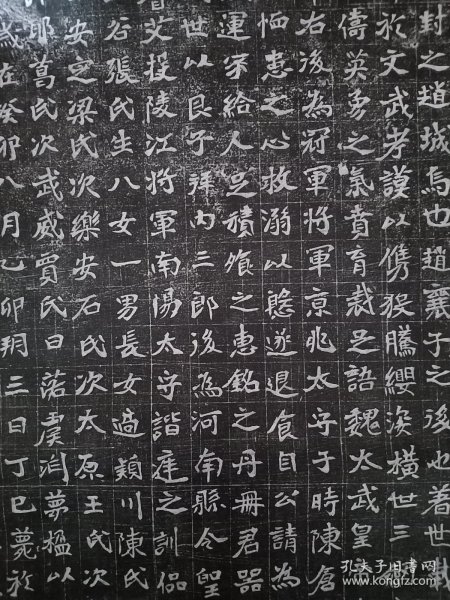 封之趙城焉也趙襄子之後也著世
於文武考謨以儁騰纓橫世三
儔英勇之氣賁育裁足語魏太武皇
右後為冠軍將軍京兆太守于時陳倉
恤惠之心救溺以愍遂退食自公請為
運家給人足積飧之惠銘之丹冊君器
世以良子祥內三郎後為河南縣令聖
艾投陵江將軍南陽太守諧庭之訓侶
谷張氏生八女一男長女適潁川陳氏
安定梁氏次樂安石氏次太原王氏次
耶葛氏次武威賈氏曰諾虞淵夢楹以
歲在癸卯八月乙卯朔三日丁巳薨於
孔夫子旧书网
www.kongfz.com